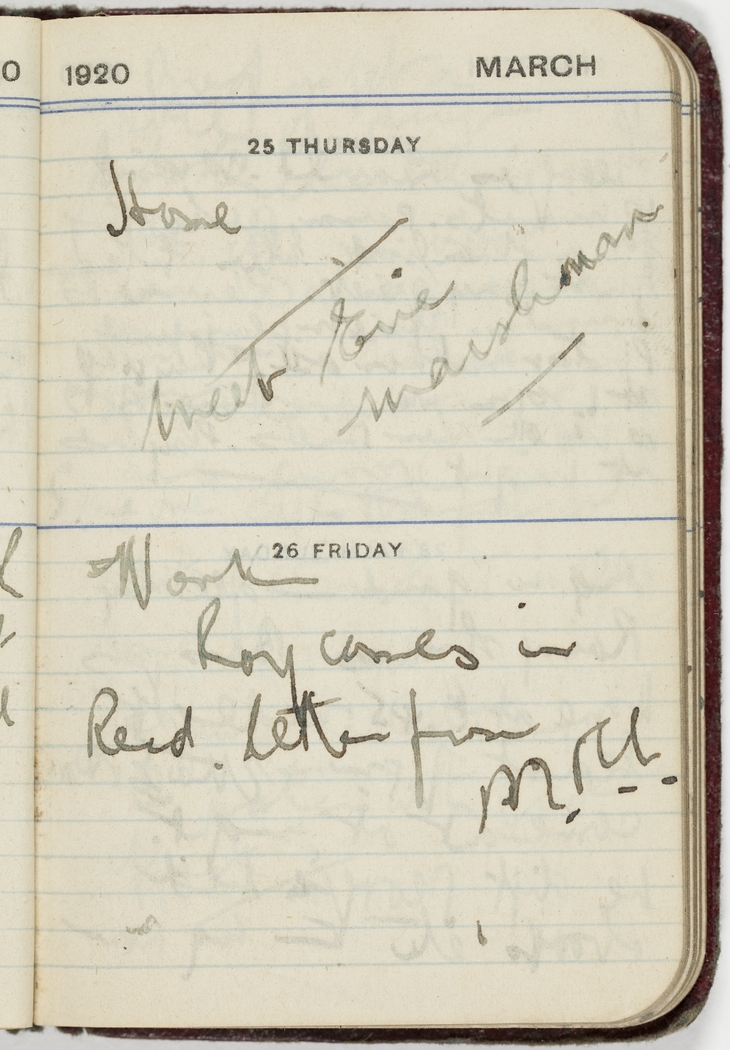 0
1920 MARCH
25 THURSDAY
Home
meet Evie
marshman
26 FRIDAY
Work
Roy comes in
Recd. letter from